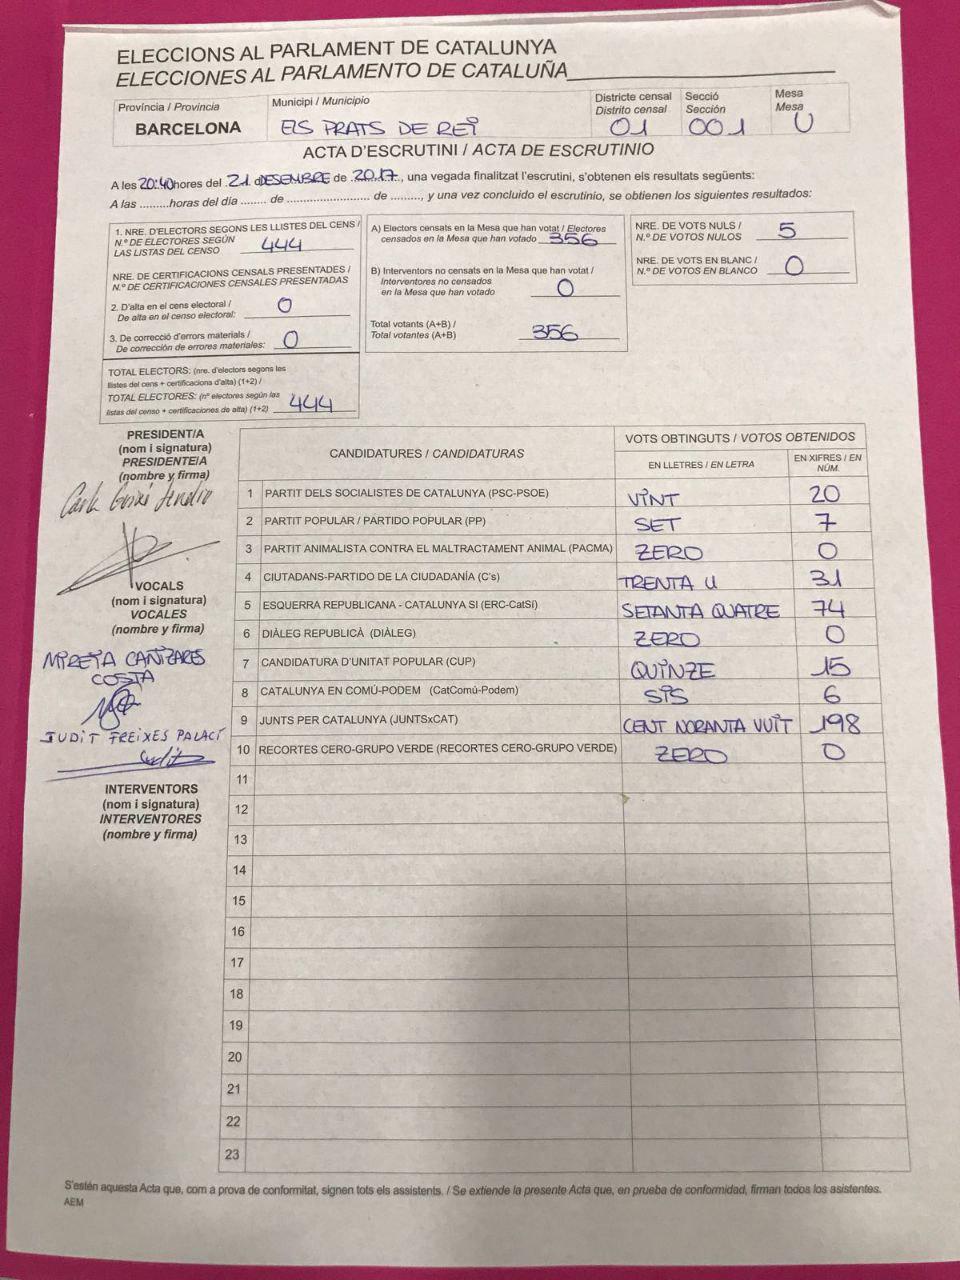 ELECCIONS AL PARLAMENT DE CATALUNYA
ELECCIONES AL PARLAMENTO DE CATALUÑA
Província / Provincia
BARCELONA
Municipi / Municipio
ELS PRATS DE REI
Districte censal
Distrito censal
01
Secció
Sección
001
Mesa
Mesa
U
ACTA D'ESCRUTINI / ACTA DE ESCRUTINIO
A les 20:40 hores del 21 d DESEMBRE de 2017, una vegada finalitzat l'escrutini, s'obtenen els resultats següents:
A las .........horas del día ........ de ......................... de ........., y una vez concluido el escrutinio, se obtienen los siguientes resultados:
1. NRE. D'ELECTORS SEGONS LES LLISTES DEL CENS /
N.º DE ELECTORES SEGÚN
LAS LISTAS DEL CENSO 444
NRE. DE CERTIFICACIONS CENSALS PRESENTADES /
N.º DE CERTIFICACIONES CENSALES PRESENTADAS
2. D'alta en el cens electoral /
De alta en el censo electoral: 0
3. De correcció d'errors materials /
De corrección de errores materiales: 0
TOTAL ELECTORS: (nre. d'electors segons les
llistes del cens + certificacions d'alta) (1+2) /
TOTAL ELECTORES: (nº electores según las
listas del censo + certificaciones de alta) (1+2) 444
A) Electors censats en la Mesa que han votat / Electores
censados en la Mesa que han votado 356
B) Interventors no censats en la Mesa que han votat /
Interventores no censados
en la Mesa que han votado 0
Total votants (A+B) /
Total votantes (A+B) 356
NRE. DE VOTS NULS /
N.º DE VOTOS NULOS 5
NRE. DE VOTS EN BLANC /
N.º DE VOTOS EN BLANCO 0
PRESIDENT/A
(nom i signatura)
PRESIDENTE/A
(nombre y firma)
VOCALS
(nom i signatura)
VOCALES
(nombre y firma)
MIREIA CAÑIZARES
COSTA
JUDIT FREIXES PALACÍ
Judit
INTERVENTORS
(nom i signatura)
INTERVENTORES
(nombre y firma)
CANDIDATURES / CANDIDATURAS
VOTS OBTINGUTS / VOTOS OBTENIDOS
EN LLETRES / EN LETRA
EN XIFRES / EN NÚM.
1 PARTIT DELS SOCIALISTES DE CATALUNYA (PSC-PSOE) VINT 20
2 PARTIT POPULAR / PARTIDO POPULAR (PP) SET 7
3 PARTIT ANIMALISTA CONTRA EL MALTRACTAMENT ANIMAL (PACMA) ZERO 0
4 CIUTADANS-PARTIDO DE LA CIUDADANÍA (C's) TRENTA U 31
5 ESQUERRA REPUBLICANA - CATALUNYA SI (ERC-CatSí) SETANTA QUATRE 74
6 DIÀLEG REPUBLICÀ (DIÀLEG) ZERO 0
7 CANDIDATURA D'UNITAT POPULAR (CUP) QUINZE 15
8 CATALUNYA EN COMÚ-PODEM (CatComú-Podem) SIS 6
9 JUNTS PER CATALUNYA (JUNTSxCAT) CENT NORANTA VUIT 198
10 RECORTES CERO-GRUPO VERDE (RECORTES CERO-GRUPO VERDE) ZERO 0
11
12
13
14
15
16
17
18
19
20
21
22
23
S'estén aquesta Acta que, com a prova de conformitat, signen tots els assistents. / Se extiende la presente Acta que, en prueba de conformidad, firman todos los asistentes.
AEM